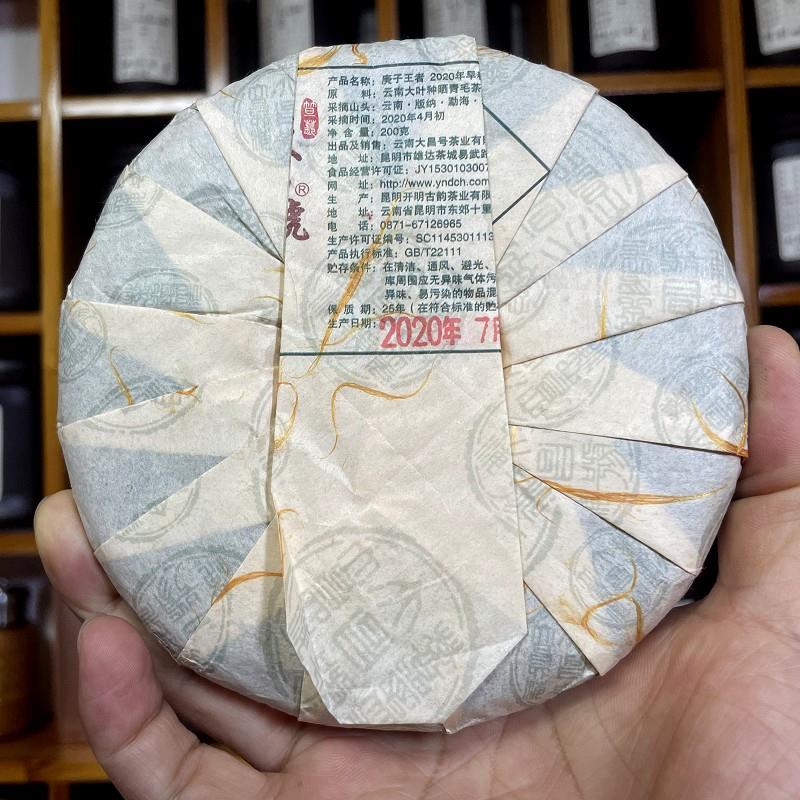 产品名称：庚子王者 2020年早
原　　料：云南大叶种晒青毛茶
采摘山头：云南·版纳·勐海·
采摘时间：2020年4月初
净 含 量：200克
出品及销售：云南大昌号茶业有
地　　址：昆明市雄达茶城易武路
食品经营许可证：JY1530103007
网　　址：http://www.yndch.com
生　　产：昆明开明古韵茶业有限
地　　址：云南省昆明市东郊十里
电　　话：0871-67126965
生产许可证编号：SC1145301113
产品执行标准：GB/T22111
贮存条件：在清洁、通风、避光、
库周围应无异味气体污
异味、易污染的物品混
保 质 期：25年（在符合标准的贮
生产日期：2020年 7月
號®